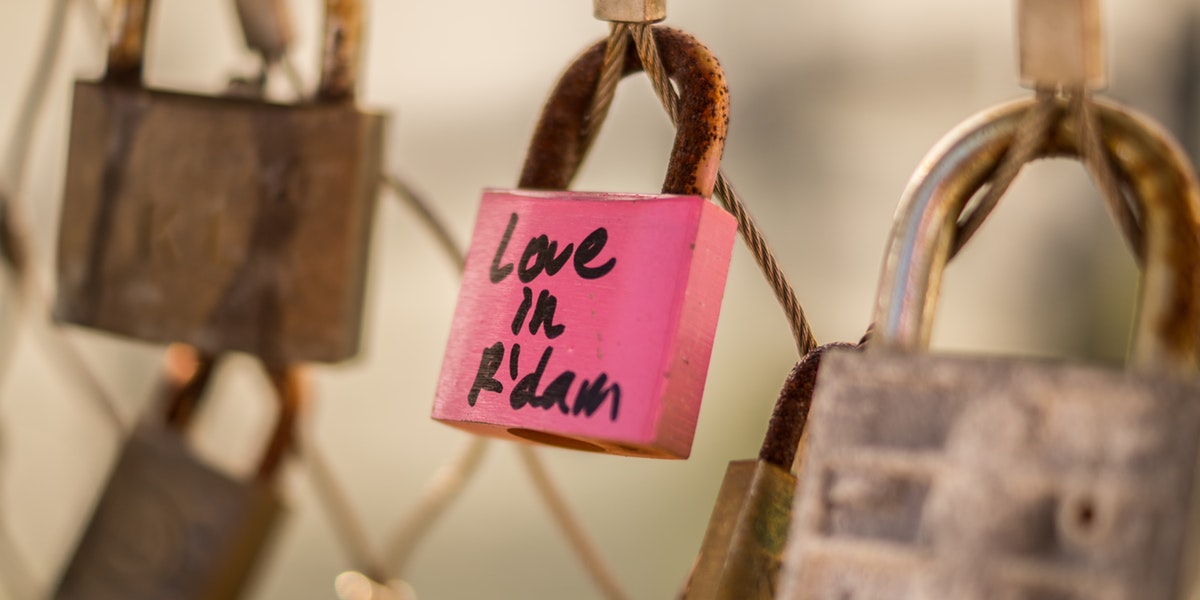 Love
in
R'dam